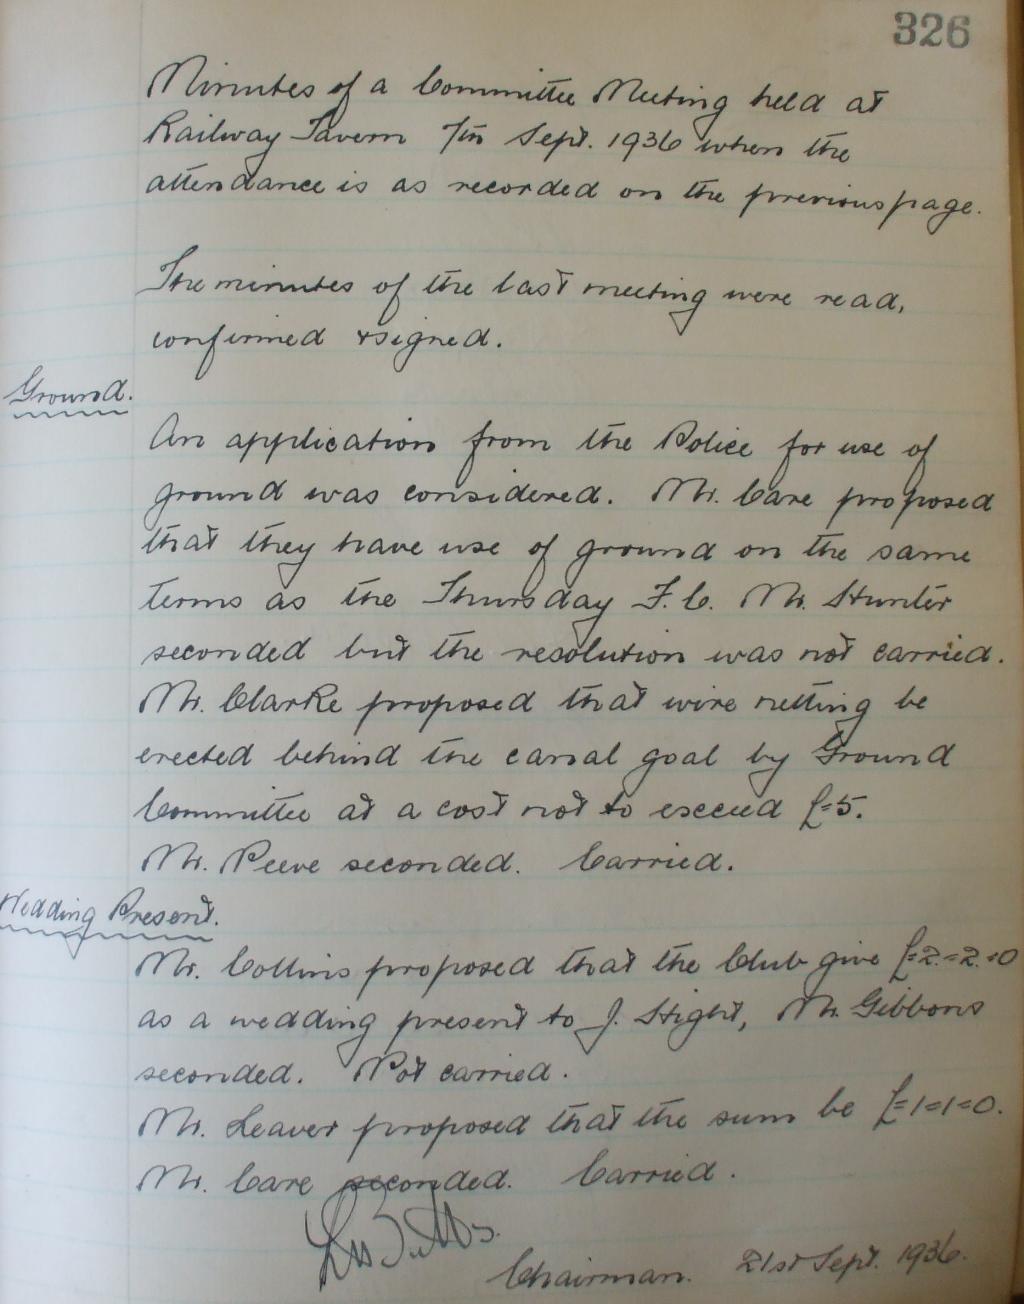 326
Minutes of a Committee Meeting held at
Railway Tavern 7th Sept. 1936 when the
attendance is as recorded on the previous page.
The minutes of the last meeting were read,
confirmed & signed.
Ground.
An application from the Police for use of
ground was considered. Mr. Care proposed
that they have use of ground on the same
terms as the Thursday F.C. Mr. Hunter
seconded but the resolution was not carried.
Mr. Clarke proposed that wire netting be
erected behind the canal goal by Ground
Committee at a cost not to exceed £=5.
Mr. Peeve seconded. Carried.
Wedding Present.
Mr. Collins proposed that the Club give £=2=2=0
as a wedding present to J. Hight, Mr. Gibbons
seconded. Not carried.
Mr. Leaver proposed that the sum be £=1=1=0.
Mr. Care seconded. Carried.
Chairman. 21st Sept. 1936.